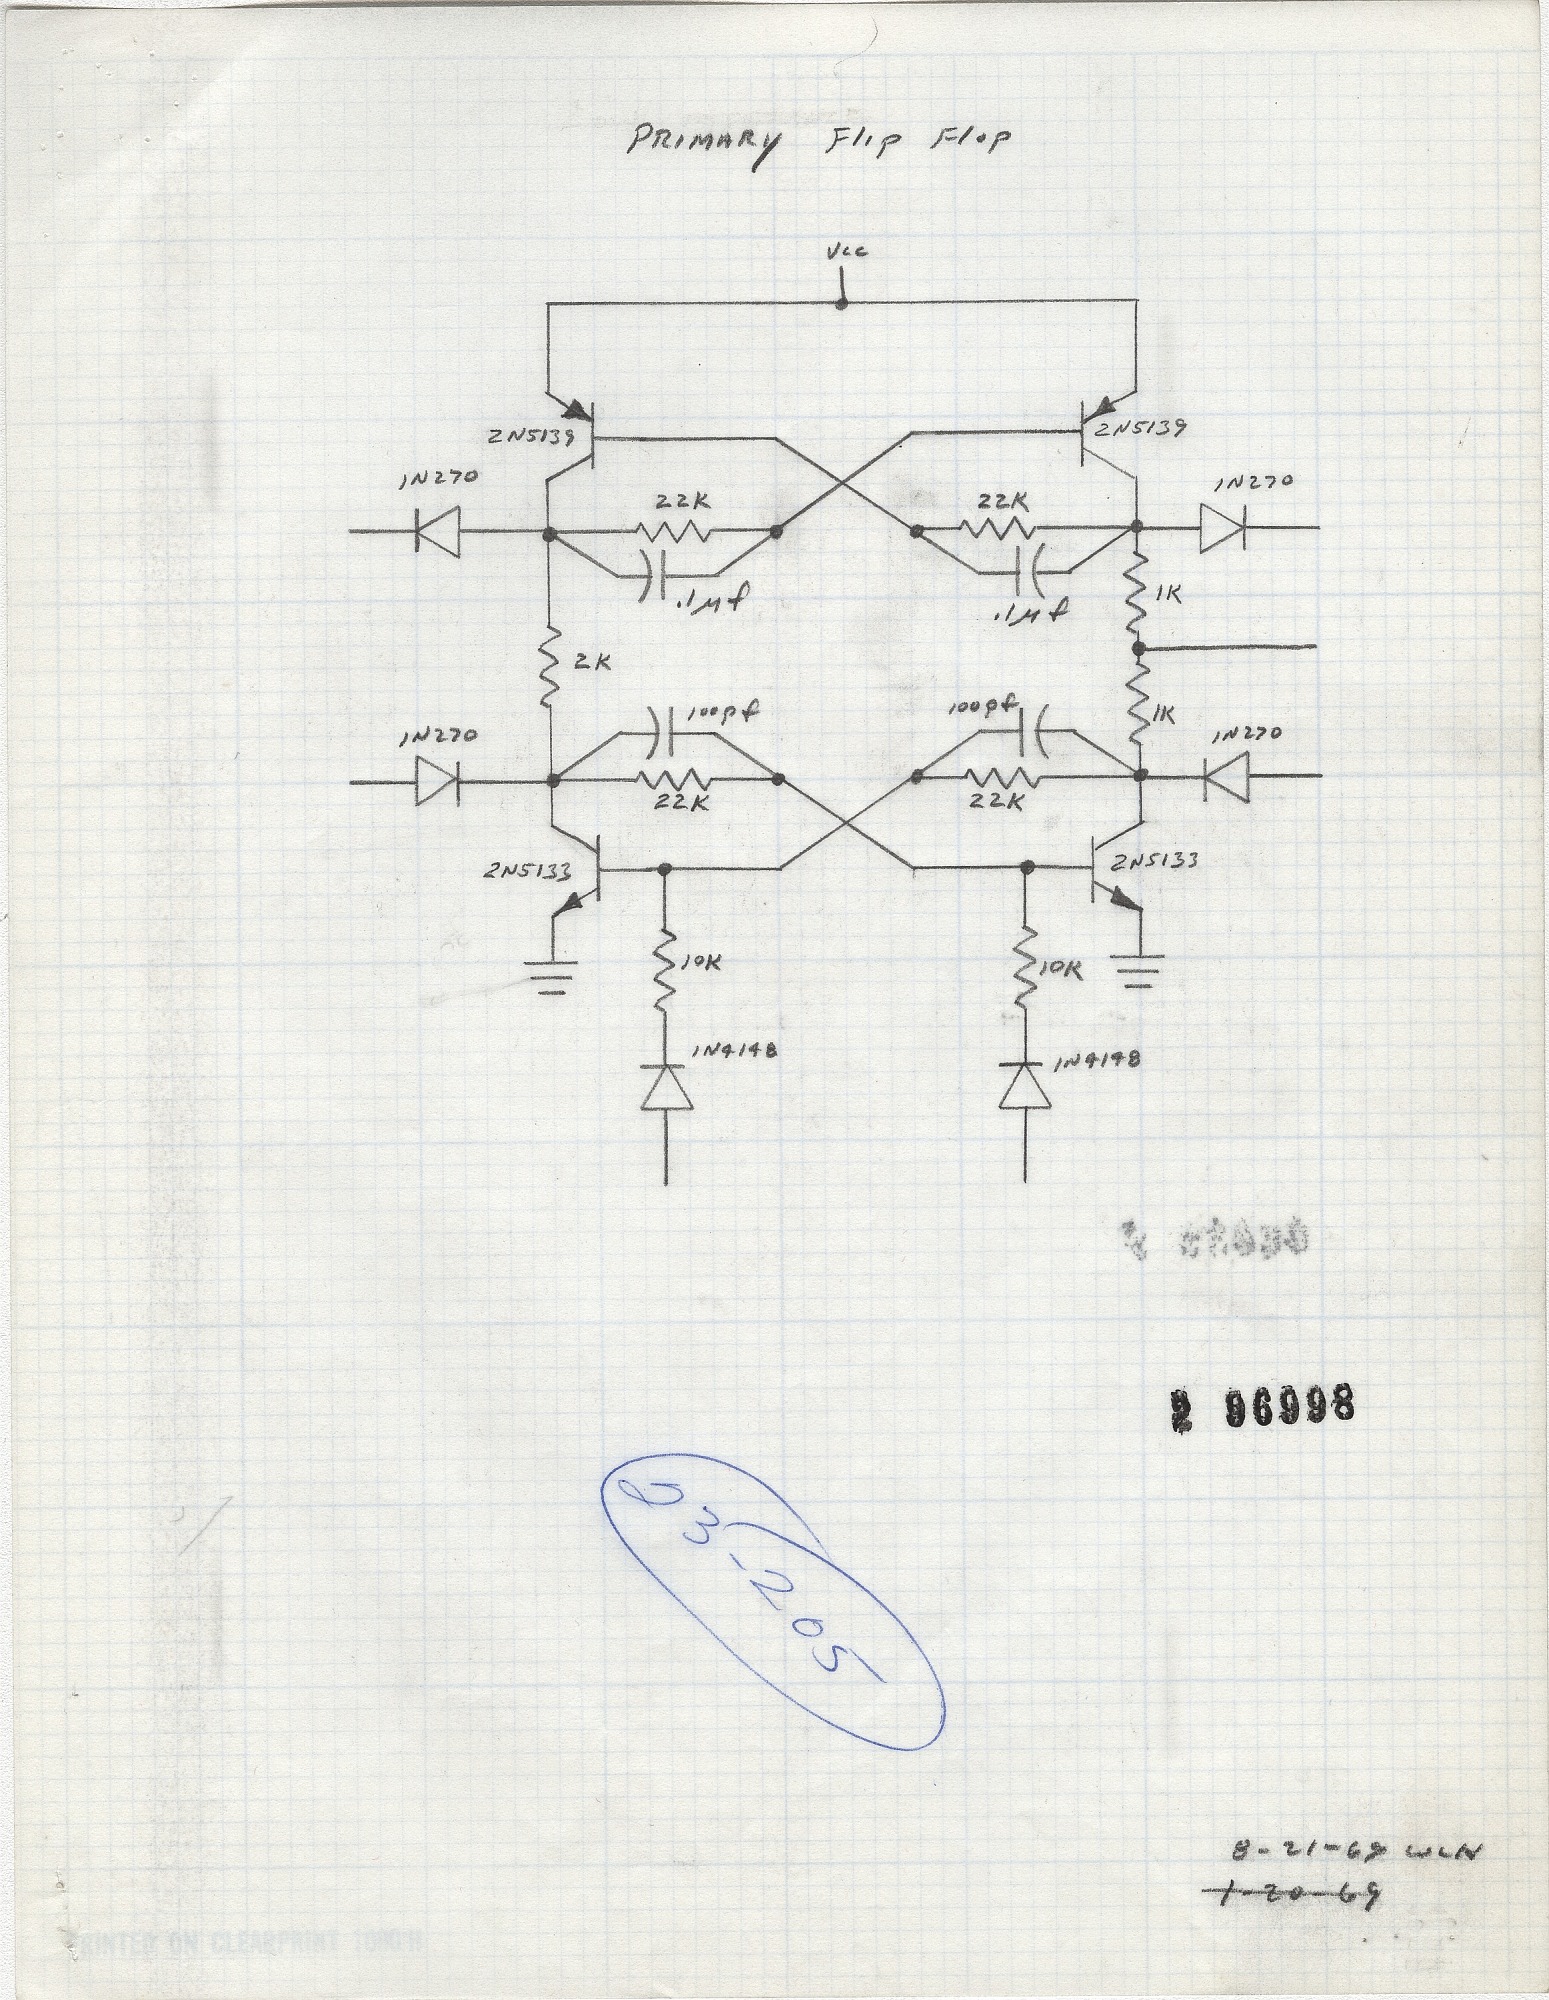 PRIMARY Flip Flop
Vcc
2N5139 2N5139
1N270 1N270
22K 22K
.1µf .1µf
1K
2K
100pf 100pf
1K
1N270 1N270
22K 22K
2N5133 2N5133
10K 10K
1N4148 1N4148
2 96998
-205
8-21-69 WLN
1-20-69
PRINTED ON CLEARPRINT 1000H